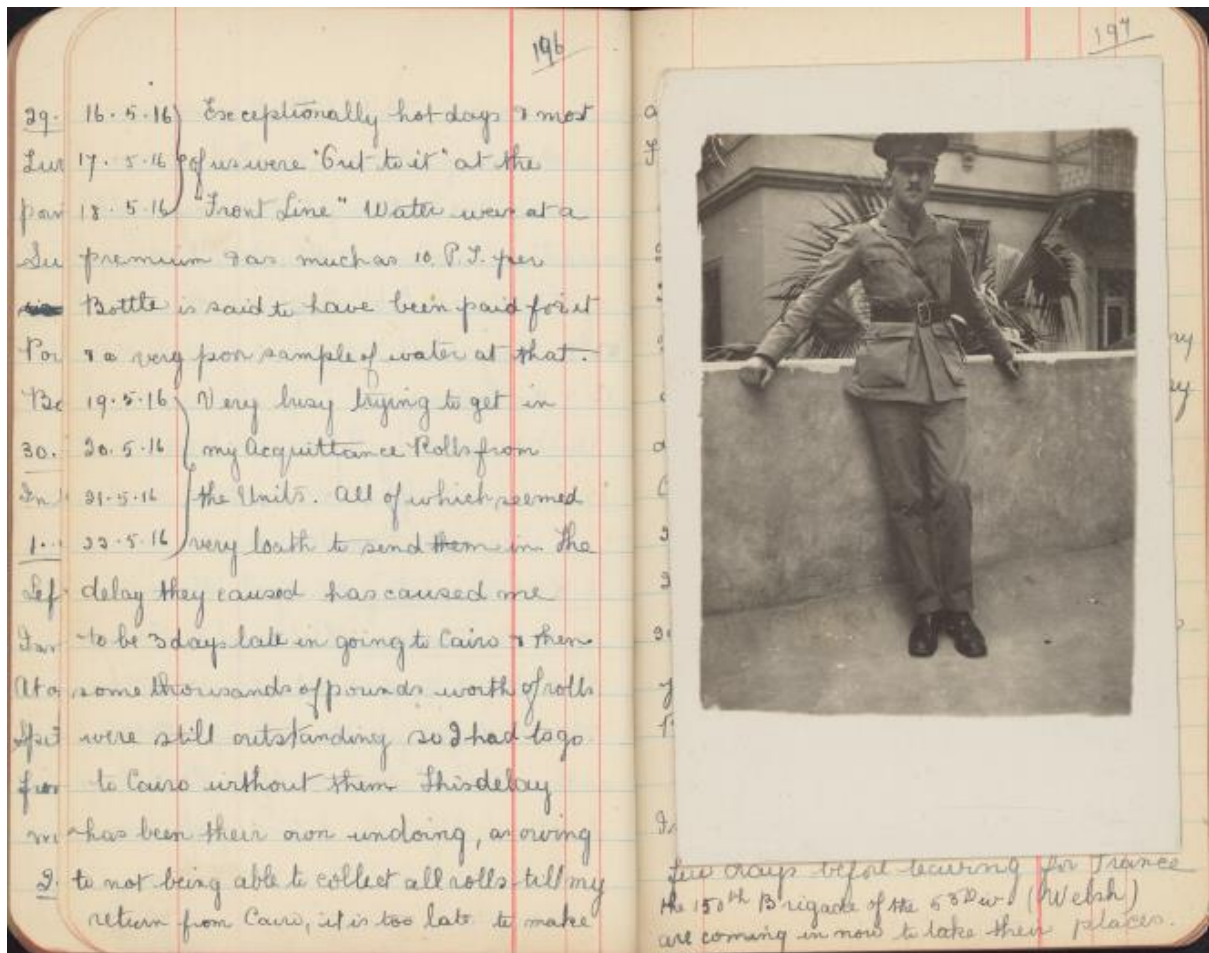 196
16.5.16 Exceptionally hot days & most
17.5.16 of us were "Out to it" at the
18.5.16 "Front Line" Water was at a
premium & as much as 10. P.T. per
Bottle is said to have been paid for it
& a very poor sample of water at that.
19.5.16 Very busy trying to get in
20.5.16 my Acquittance Rolls from
21.5.16 the Units. All of which seemed
22.5.16 very loath to send them in. The
delay they caused has caused me
to be 3 days late in going to Cairo & then
some thousands of pounds worth of rolls
were still outstanding so I had to go
to Cairo without them. This delay
has been their own undoing, as owing
to not being able to collect all rolls till my
return from Cairo, it is too late to make
29.
30.
1.
2.
197
few days before leaving for France
the 150th Brigade of the 53 Div (Welsh)
are coming in now to take their places.